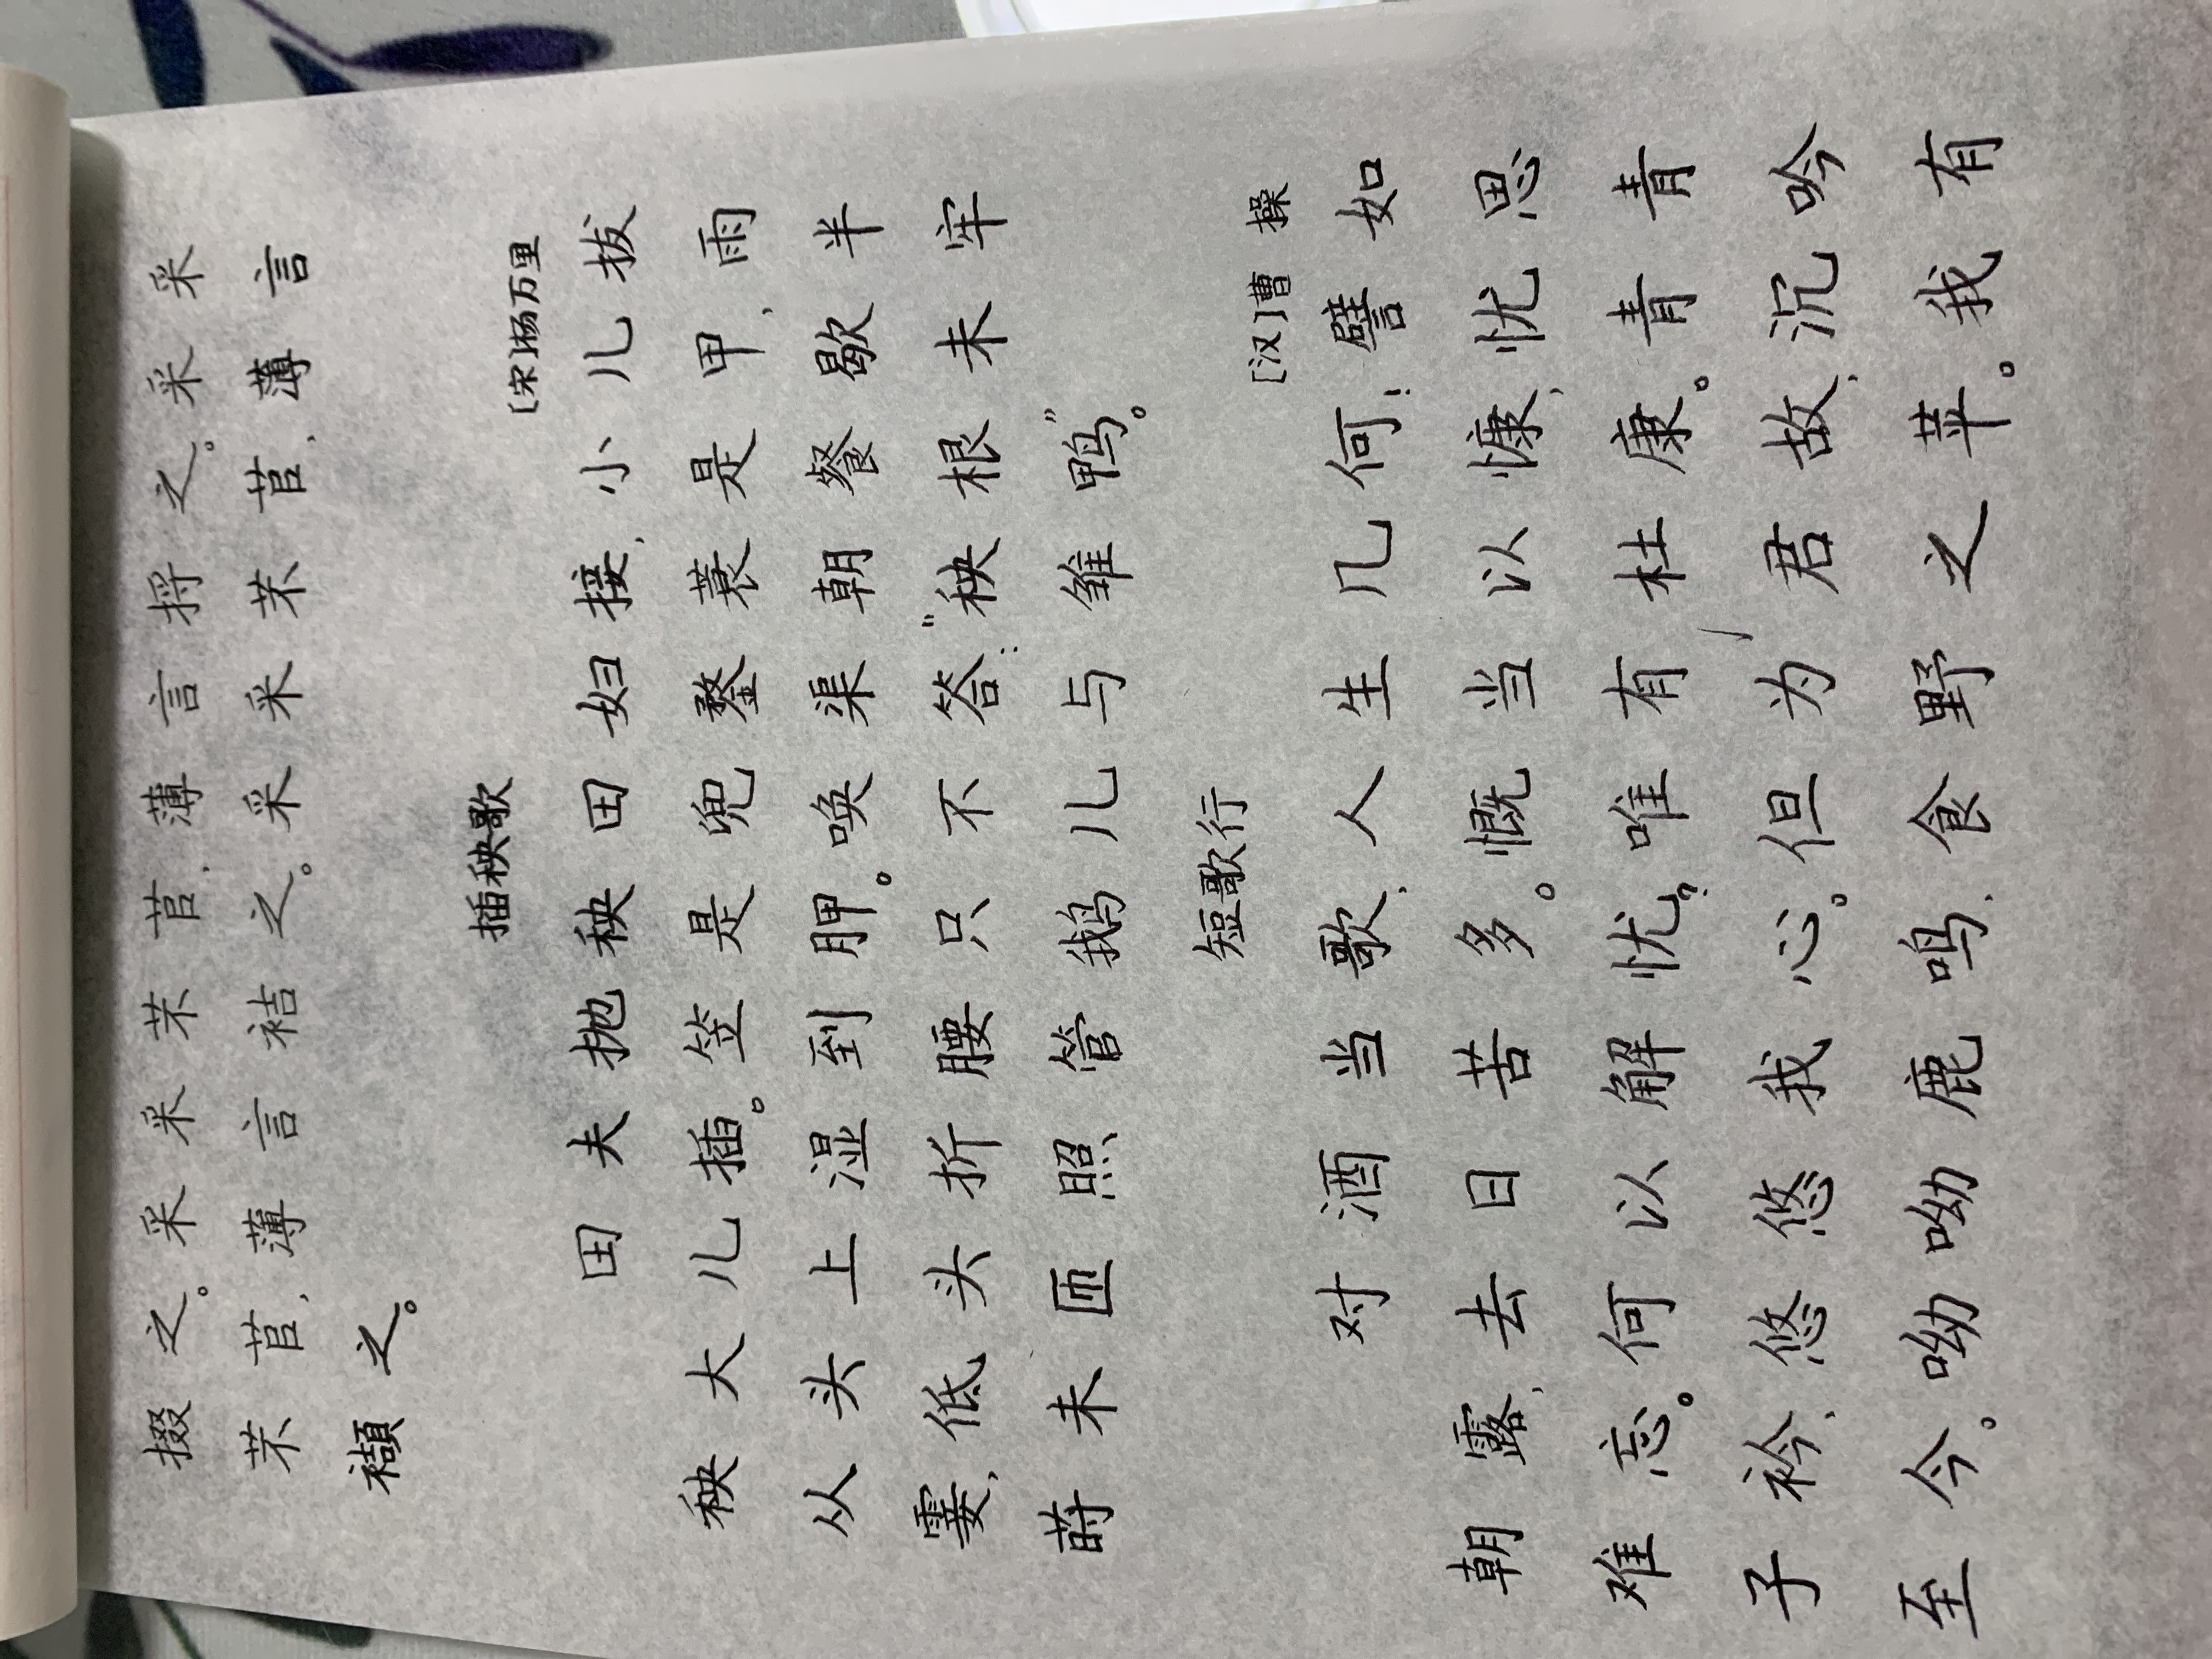 掇之。采采芣苢，薄言捋之。采采
芣苢，薄言袺之。采采芣苢，薄言
襭之。
插秧歌
[宋]杨万里
田夫抛秧田妇接，小儿拔
秧大儿插。笠是兜鍪蓑是甲，雨
从头上湿到胛。唤渠朝餐歇半
霎，低头折腰只不答：“秧根未牢
莳未匝照管鹅儿与雏鸭”。
短歌行
[汉]曹 操
对酒当歌，人生几何！譬如
朝露，去日苦多。慨当以慷，忧思
难忘。何以解忧？唯有杜康。青青
子衿，悠悠我心。但为君故，沉吟
至今。呦呦鹿鸣，食野之苹。我有